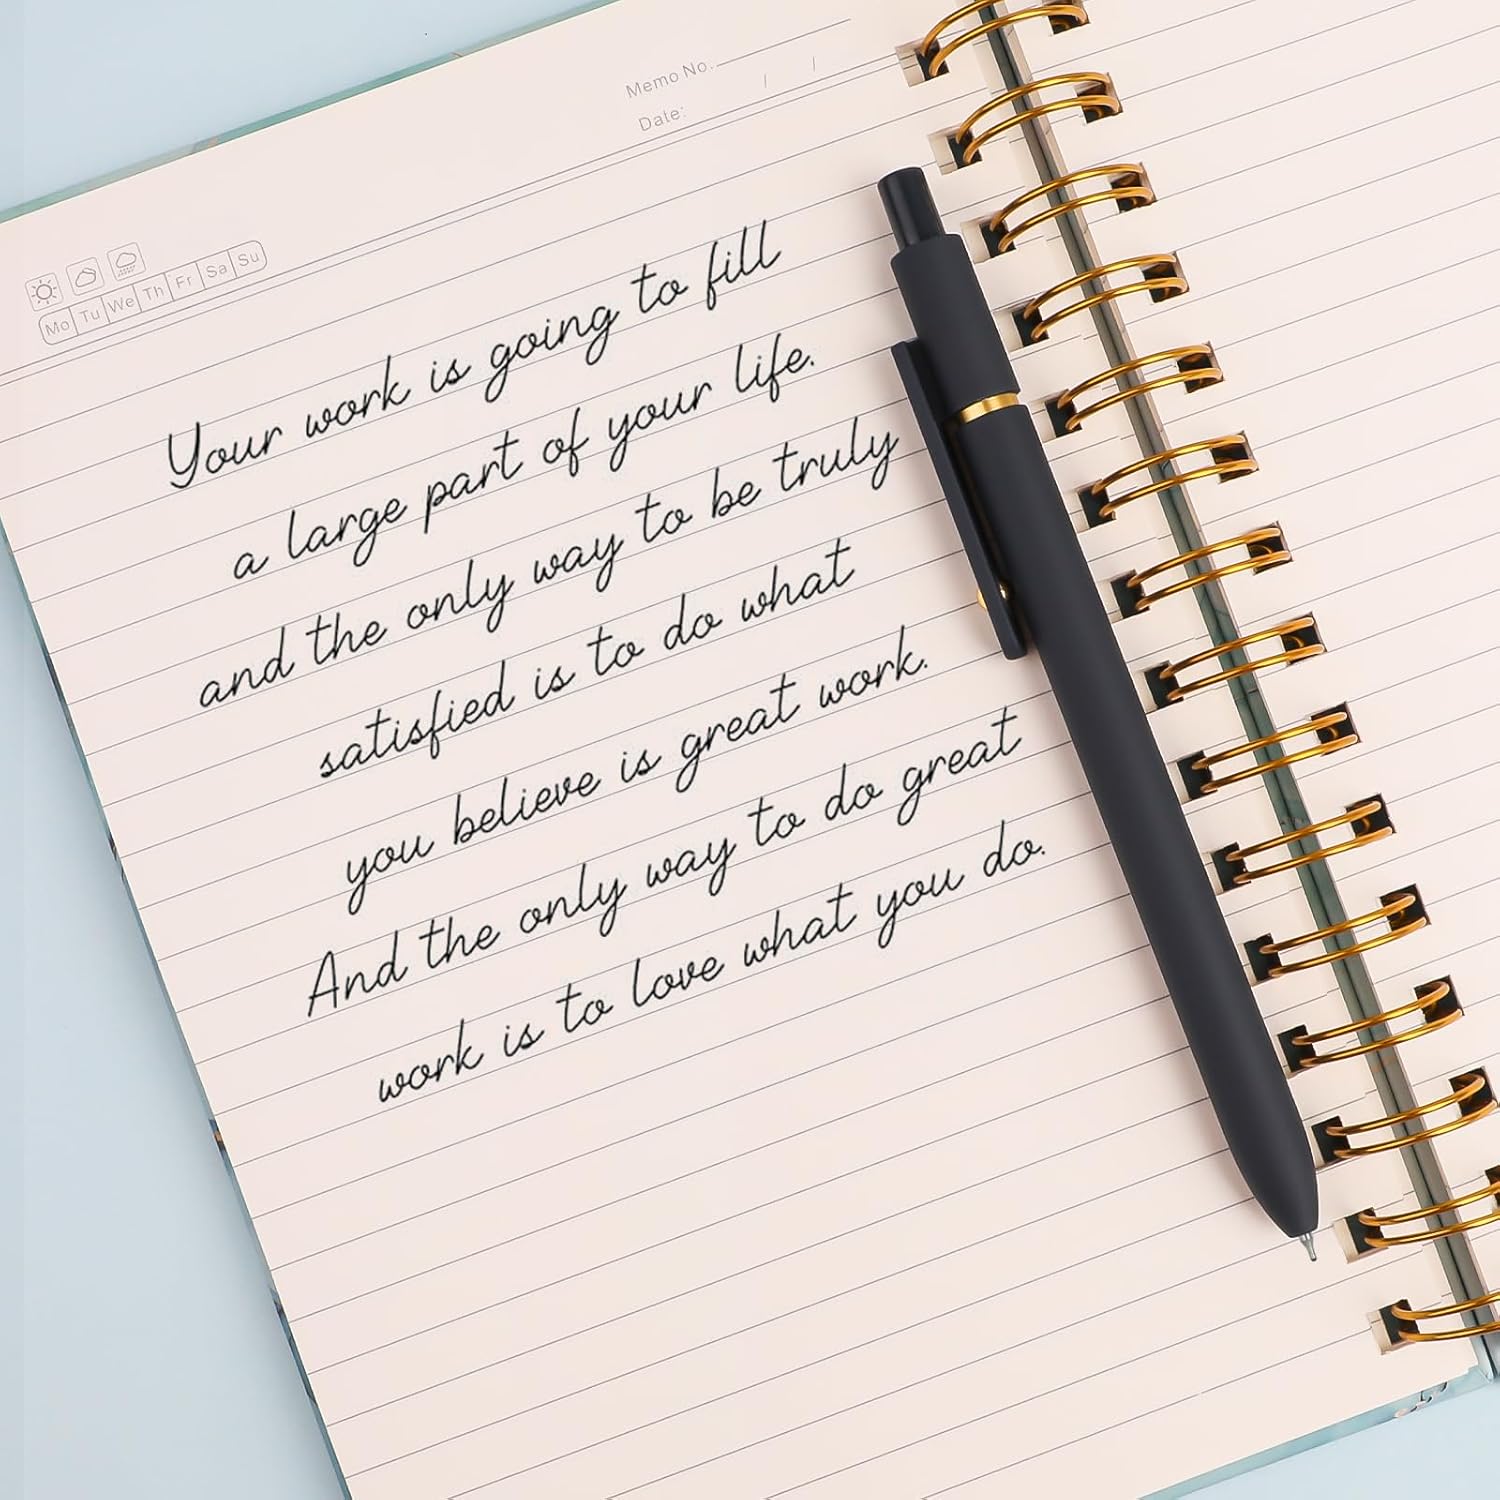 Memo No.
Date: / /
Mo Tu We Th Fr Sa Su
Your work is going to fill
a large part of your life.
and the only way to be truly
satisfied is to do what
you believe is great work.
And the only way to do great
work is to love what you do.